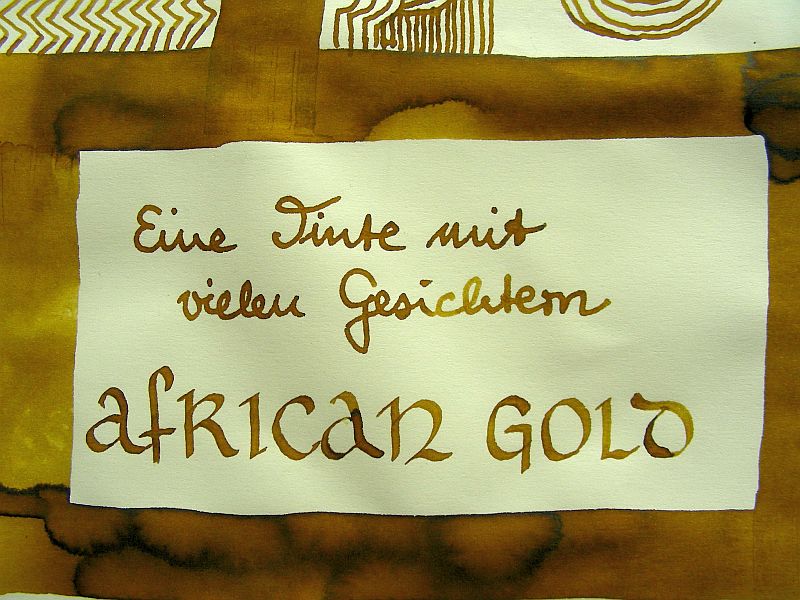 Eine Tinte mit
vielen Gesichtern
african GOLD